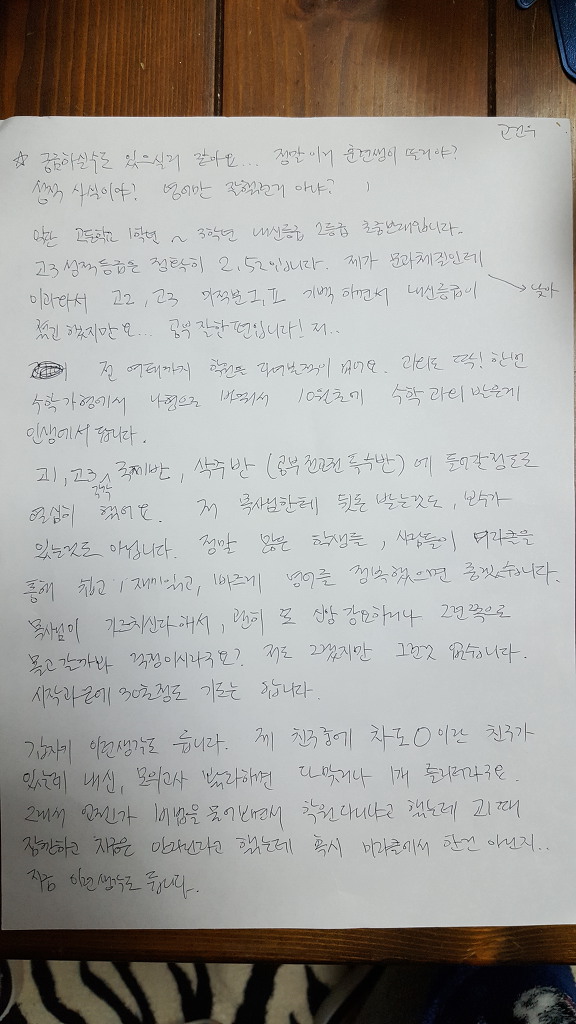 고건우
☆ 궁금하실수도 있으실거 같아요... 정말 이거 훈련생이 쓴거야?
성적 상식이야? 영어만 잘했던거 아냐?
일단 고등학교 1학년 ~ 3학년 내신등급 2등급 초중반대입니다..
고3 성적등급은 정확히 2.52입니다. 제가 문과체질인데
이과라서 고2, 고3 미적분I, II 기벡 하면서 내신등급이 → 낮아
졌긴 했지만요... 공부 잘한 편입니다! 저..
전 여태까지 학원을 다녀본적이 없어요. 과외도 딱! 한번
수학 가형에서 나형으로 바꿔서 10월초에 수학 과외 받은게
인생에서 답니다.
고1, 고3 각각 국제반, 삭주반 (공부 전교권 특수반) 에 들어갈정도로
열심히 했어요. 저 목사님한테 뒷돈 받는것도, 보수가
있는것도 아닙니다. 정말 많은 학생들, 사람들이 미라클을
통해 쉽고, 재미있고, 바르게 영어를 접속했으면 좋겠습니다.
목사님이 가르치신다해서, 괜히 또 신앙 강요하거나 그런쪽으로
몰고 갈까봐 걱정이시라구요? 저도 그랬지만 그런것 없습니다.
시작과 끝에 30초정도 기도는 합니다.
갑자기 이런생각도 듭니다. 제 친구중에 차도○이란 친구가
있는데 내신, 모의고사 봤다하면 다맞거나 1개 틀리더라구요.
그래서 언젠가 1비법을 물어보면서 학원다니냐고 했는데 고1때
잠깐하고 지금은 안다닌다고 했는데 혹시 미라클에서 한건 아닌지..
지금 이런생각도 듭니다.